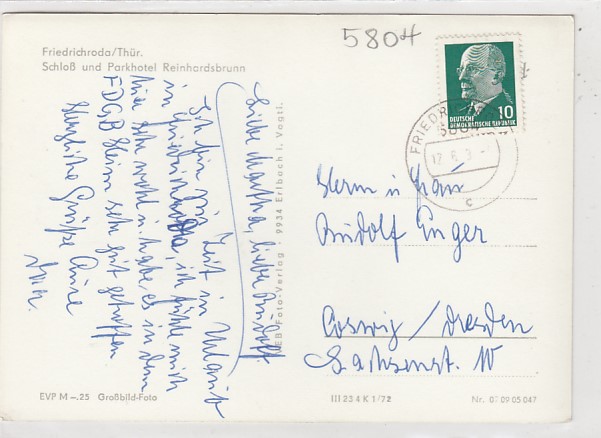 5804
Friedrichroda/Thür.
Schloß und Parkhotel Reinhardsbrunn
DEUTSCHE
DEMOKRATISCHE REPUBLIK
10
FRIEDR
c
Liebe Martha, lieber Rudolf.
Ich bin zur Zeit in Urlaub
in Friedrichroda, ich fühl mich
hier sehr wohl u. habe es in dem
FDGB Heim sehr gut getroffen
Herzliche Grüße Eure
VEB Foto-Verlag · 9934 Erlbach i. Vogtl.
Herrn u Frau
Rudolf Enger
Coswig / Dresden
Sachsenst. 10
EVP M –.25 Großbild-Foto
III 23 4 K 1/72
Nr. 07 09 05 047